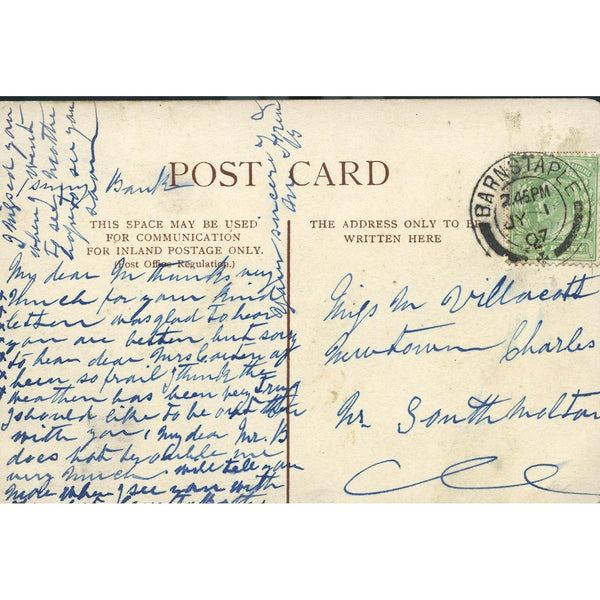 I missed you
when I went
to see Mothe
hope to see you
soon
Sunny Bank
POST CARD
THIS SPACE MAY BE USED
FOR COMMUNICATION
FOR INLAND POSTAGE ONLY.
(Post Office Regulation.)
THE ADDRESS ONLY TO BE
WRITTEN HERE
BARNSTAPLE
7.45PM
JY 1
07
My dear M thanks very
much for your kind
letter was glad to hear
you are better but sorry
to hear dear Mrs
been so frail I think the
weather has been very trying
I should like to be out there
with you, My dear Mr. B
does not me
very much will tell you
more when I see you with
Yours sincere
Friend
Miss M Villacott
Newtown Charles
Nr South Molton